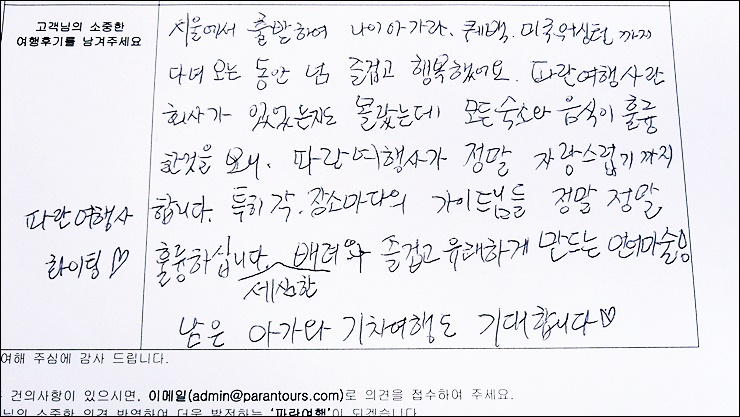 고객님의 소중한
여행후기를 남겨주세요
서울에서 출발하여 나이아가라, 퀘백, 미국워싱턴까지
다녀 오는 동안 넘 즐겁고 행복했어요. 파란여행사란
회사가 있었는지도 몰랐는데 모든숙소와 음식이 훌륭
한것을 보니, 파란여행사가 정말 자랑스럽기까지
합니다. 특히 각.장소마다의 가이드님들 정말 정말
훌륭하십니다 세심한 배려와 즐겁고 유쾌하게 만드는 언어마술
남은 아가와 기차여행도 기대합니다♡
파란여행사
화이팅♡
여해 주심에 감사 드립니다.
건의사항이 있으시면, 이메일(admin@parantours.com)로 의견을 접수하여 주세요.
님의 소중한 의견 반영하여 더욱 발전하는 '파란여행'이 되겠습니다